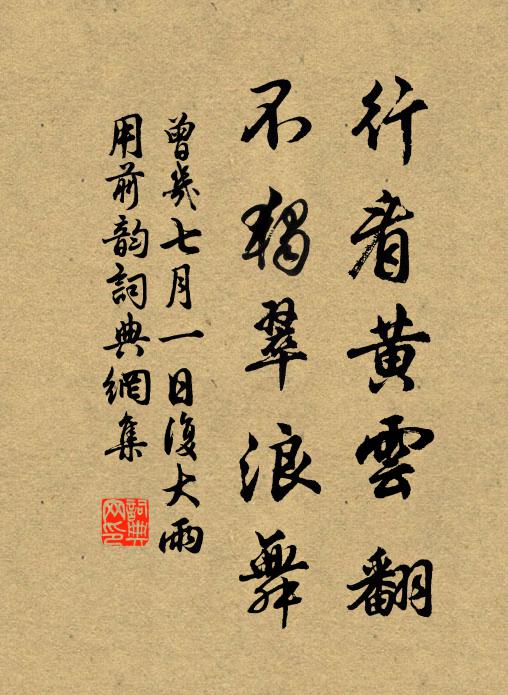 行看黄雲翻
不獨翠浪舞
曾幾七月一日復大雨
用前韵詞典網集
詞典网印